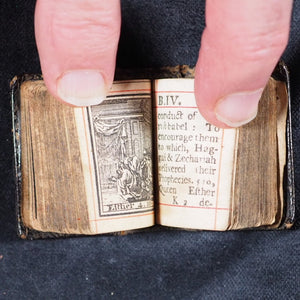 Esther 4.
B.IV.
conduct of
: To
encourage them
to which, Hag-
gai & Zechariah
delivered their
Prophecies. 510,
Queen Esther
K 2 de-